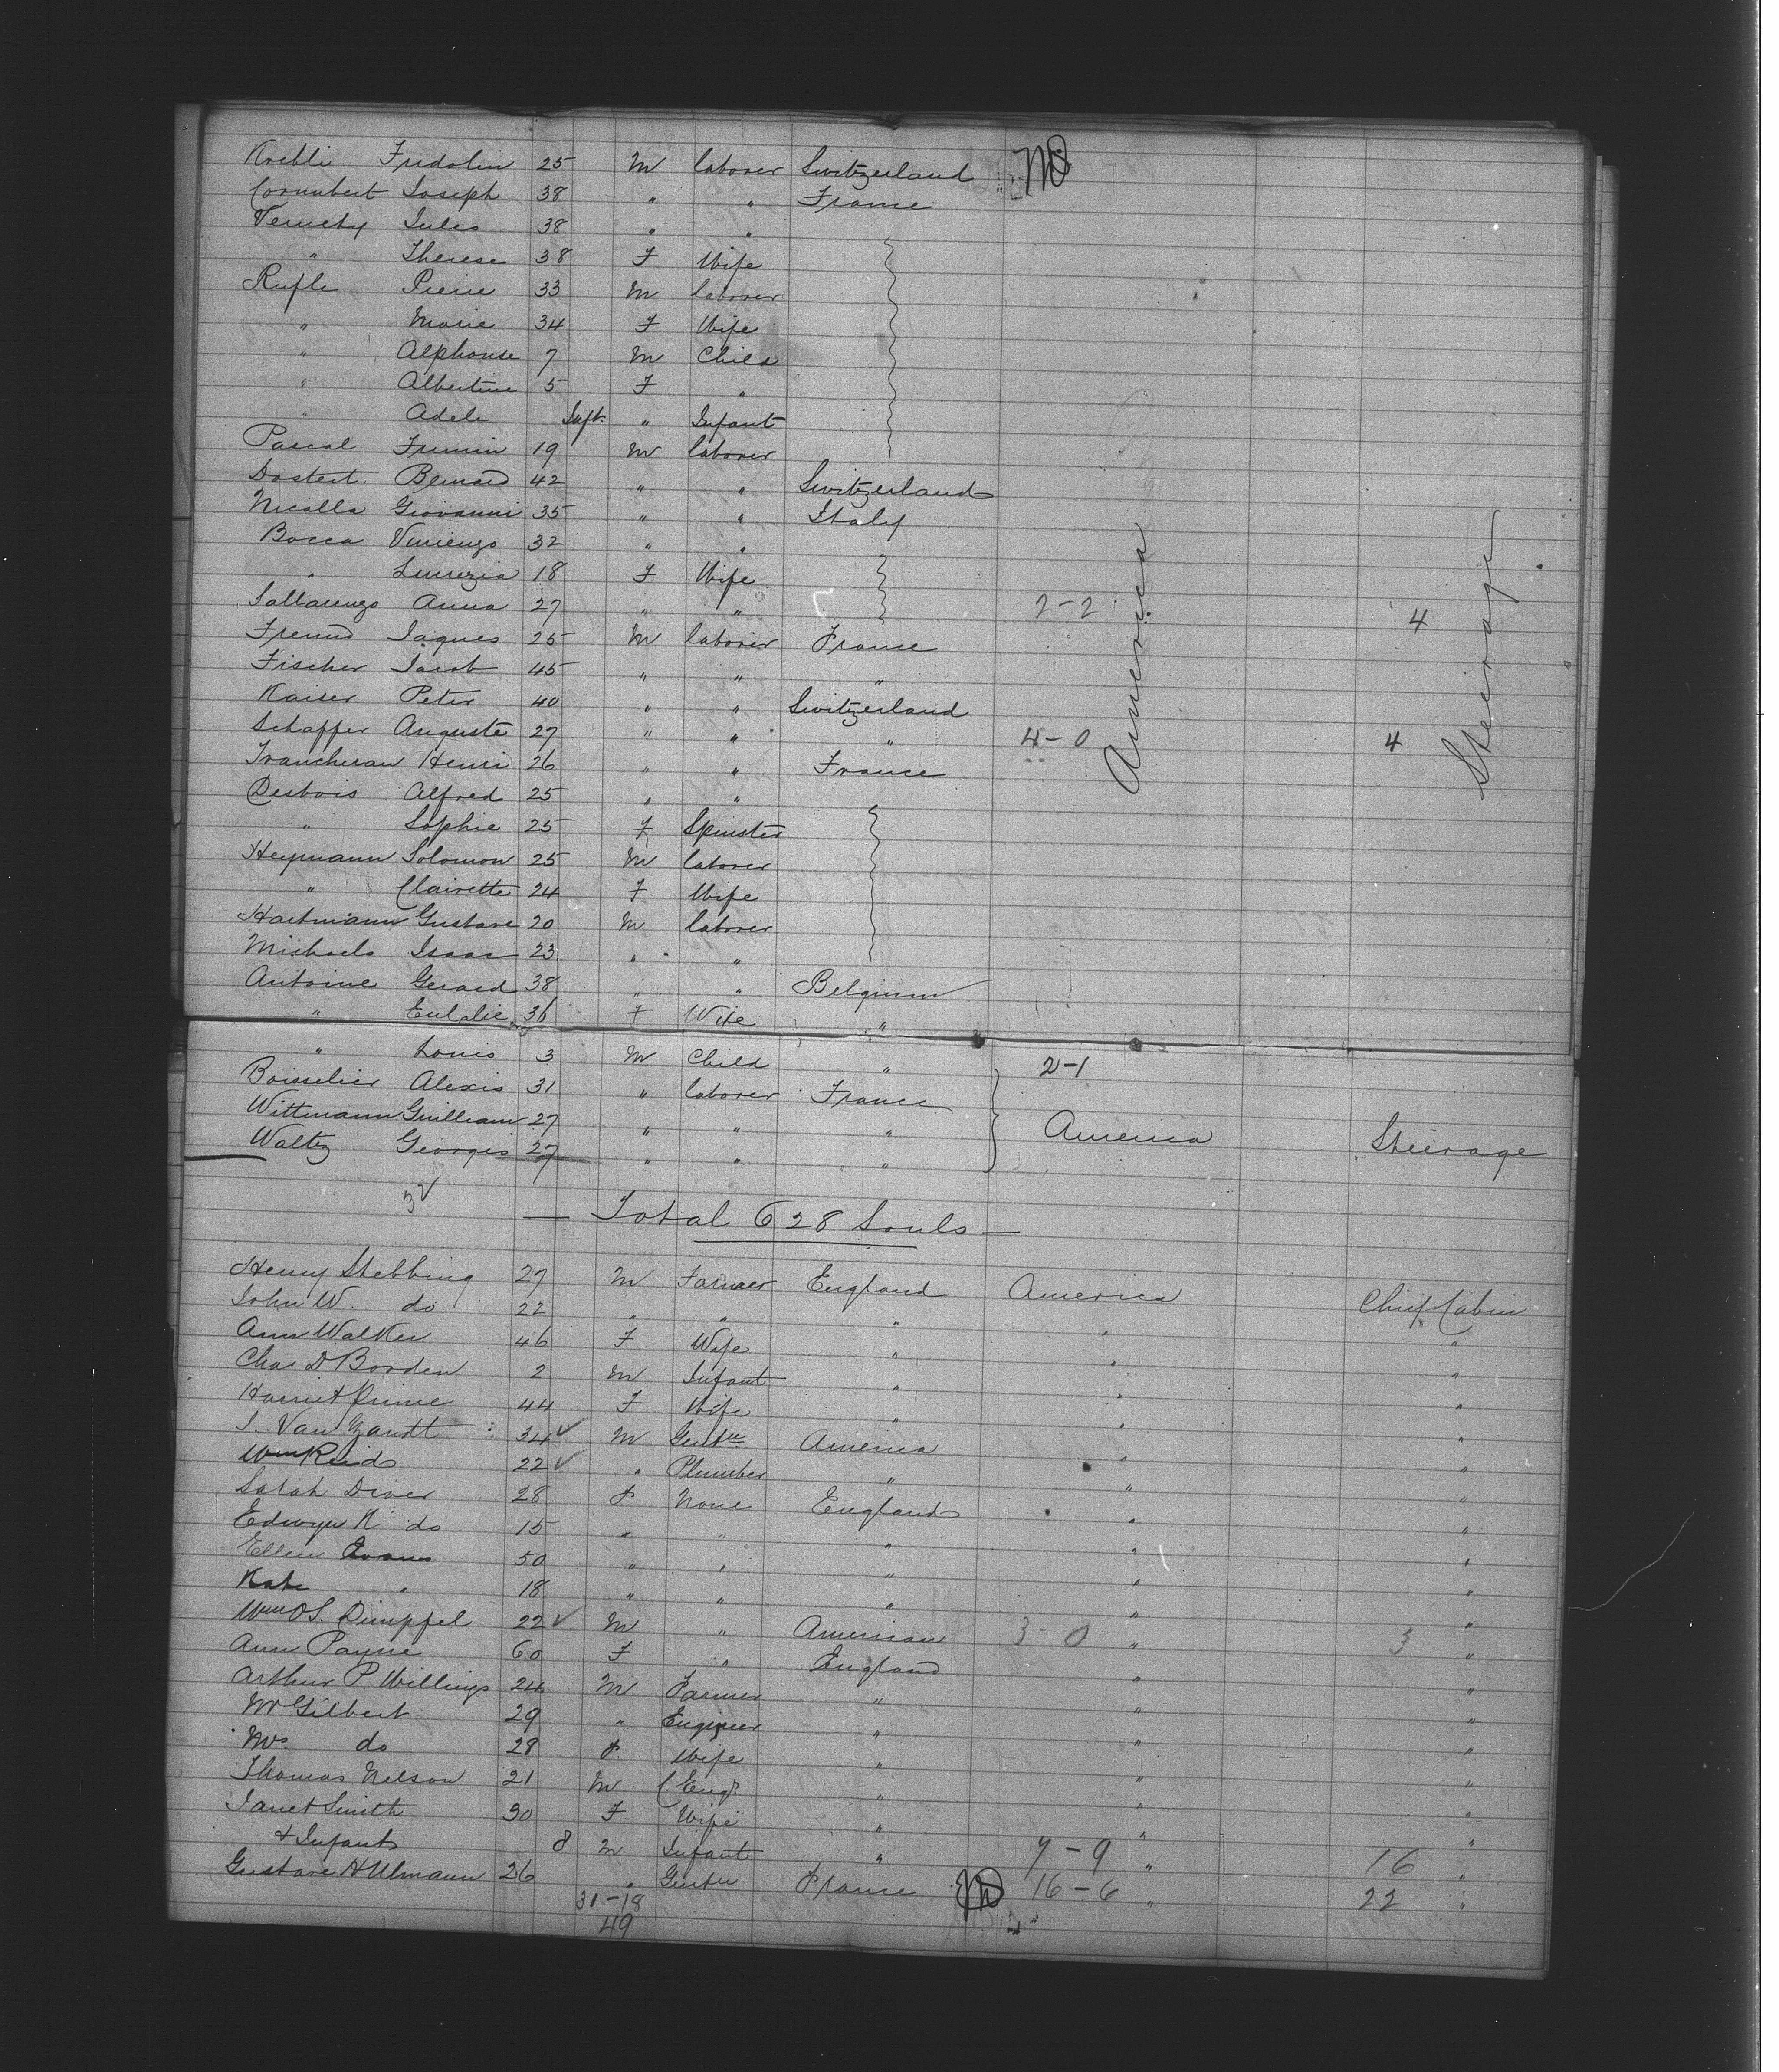 Krebli Fridolin 25 M laborer Switzerland
Cornubert Joseph 38 " " France
Jules 38 " "
" Therese 38 F Wife
Rufle Pierre 33 M laborer
" Marie 34 F Wife
" Alphonse 7 M Child
" Albertine 5 F "
" Adele Inft. " Infant
Pascal Firmin 19 M laborer
Dostert Bernard 42 " " Switzerland
Nicolla Giovanni 35 " " Italy
Bocca Vincenzo 32 " "
" Lucrezia 18 F Wife
Anna 27 " " 2-2 4
Freund Jaques 25 M laborer France
Fischer Jacob 45 " " "
Kaiser Peter 40 " " Switzerland
Schaffer Auguste 27 " " " 4-0 America 4 Steerage
Trancheran Henri 26 " " France
Desbois Alfred 25 " "
" Sophie 25 F Spinster
Heymann Solomon 25 M laborer
" Clairette 24 F Wife
Hartmann Gustave 20 M laborer
Michaels Isaac 23 " "
Antoine Gerard 38 " " Belgium
" Eulalie 36 F Wife "
" Louis 3 M Child " 2-1
Boisselier Alexis 31 " laborer France
Wittmann Guilliam 27 " " " America Steerage
Waltz Georges 27 " " "
— Total 628 Souls —
Henry Stebbing 27 M Farmer England America Chief Cabin
John W. do 22 " " " " "
Ann Walker 46 F Wife " " "
Cha D Borden 2 M Infant " " "
Harriet Prince 44 F Wife " " "
J. Van Zandt 34 M Gentn America " "
Wm Reid 22 " Plumber " " "
Sarah Diver 28 F None England " "
Edwyn K do 15 " " " " "
Ellen Evans 50 " " " " "
Kate " 18 " " " " "
Wm O S. Dimpfel 22 M " American 3-0 " 3 "
Ann Payne 60 F " England " "
Arthur P. Willings 24 M Farmer " " "
Mr Gilbert 29 " Engineer " " "
Mrs. do 28 F. Wife " " "
Thomas Nelson 21 M C. Engr. " " "
Janet Smith 30 F Wife " " "
& Infant 8 M Infant " 7-9 " 16 "
Gustave H Ulmann 26 " Gentn France 16-6 " 22 "
31-18
49